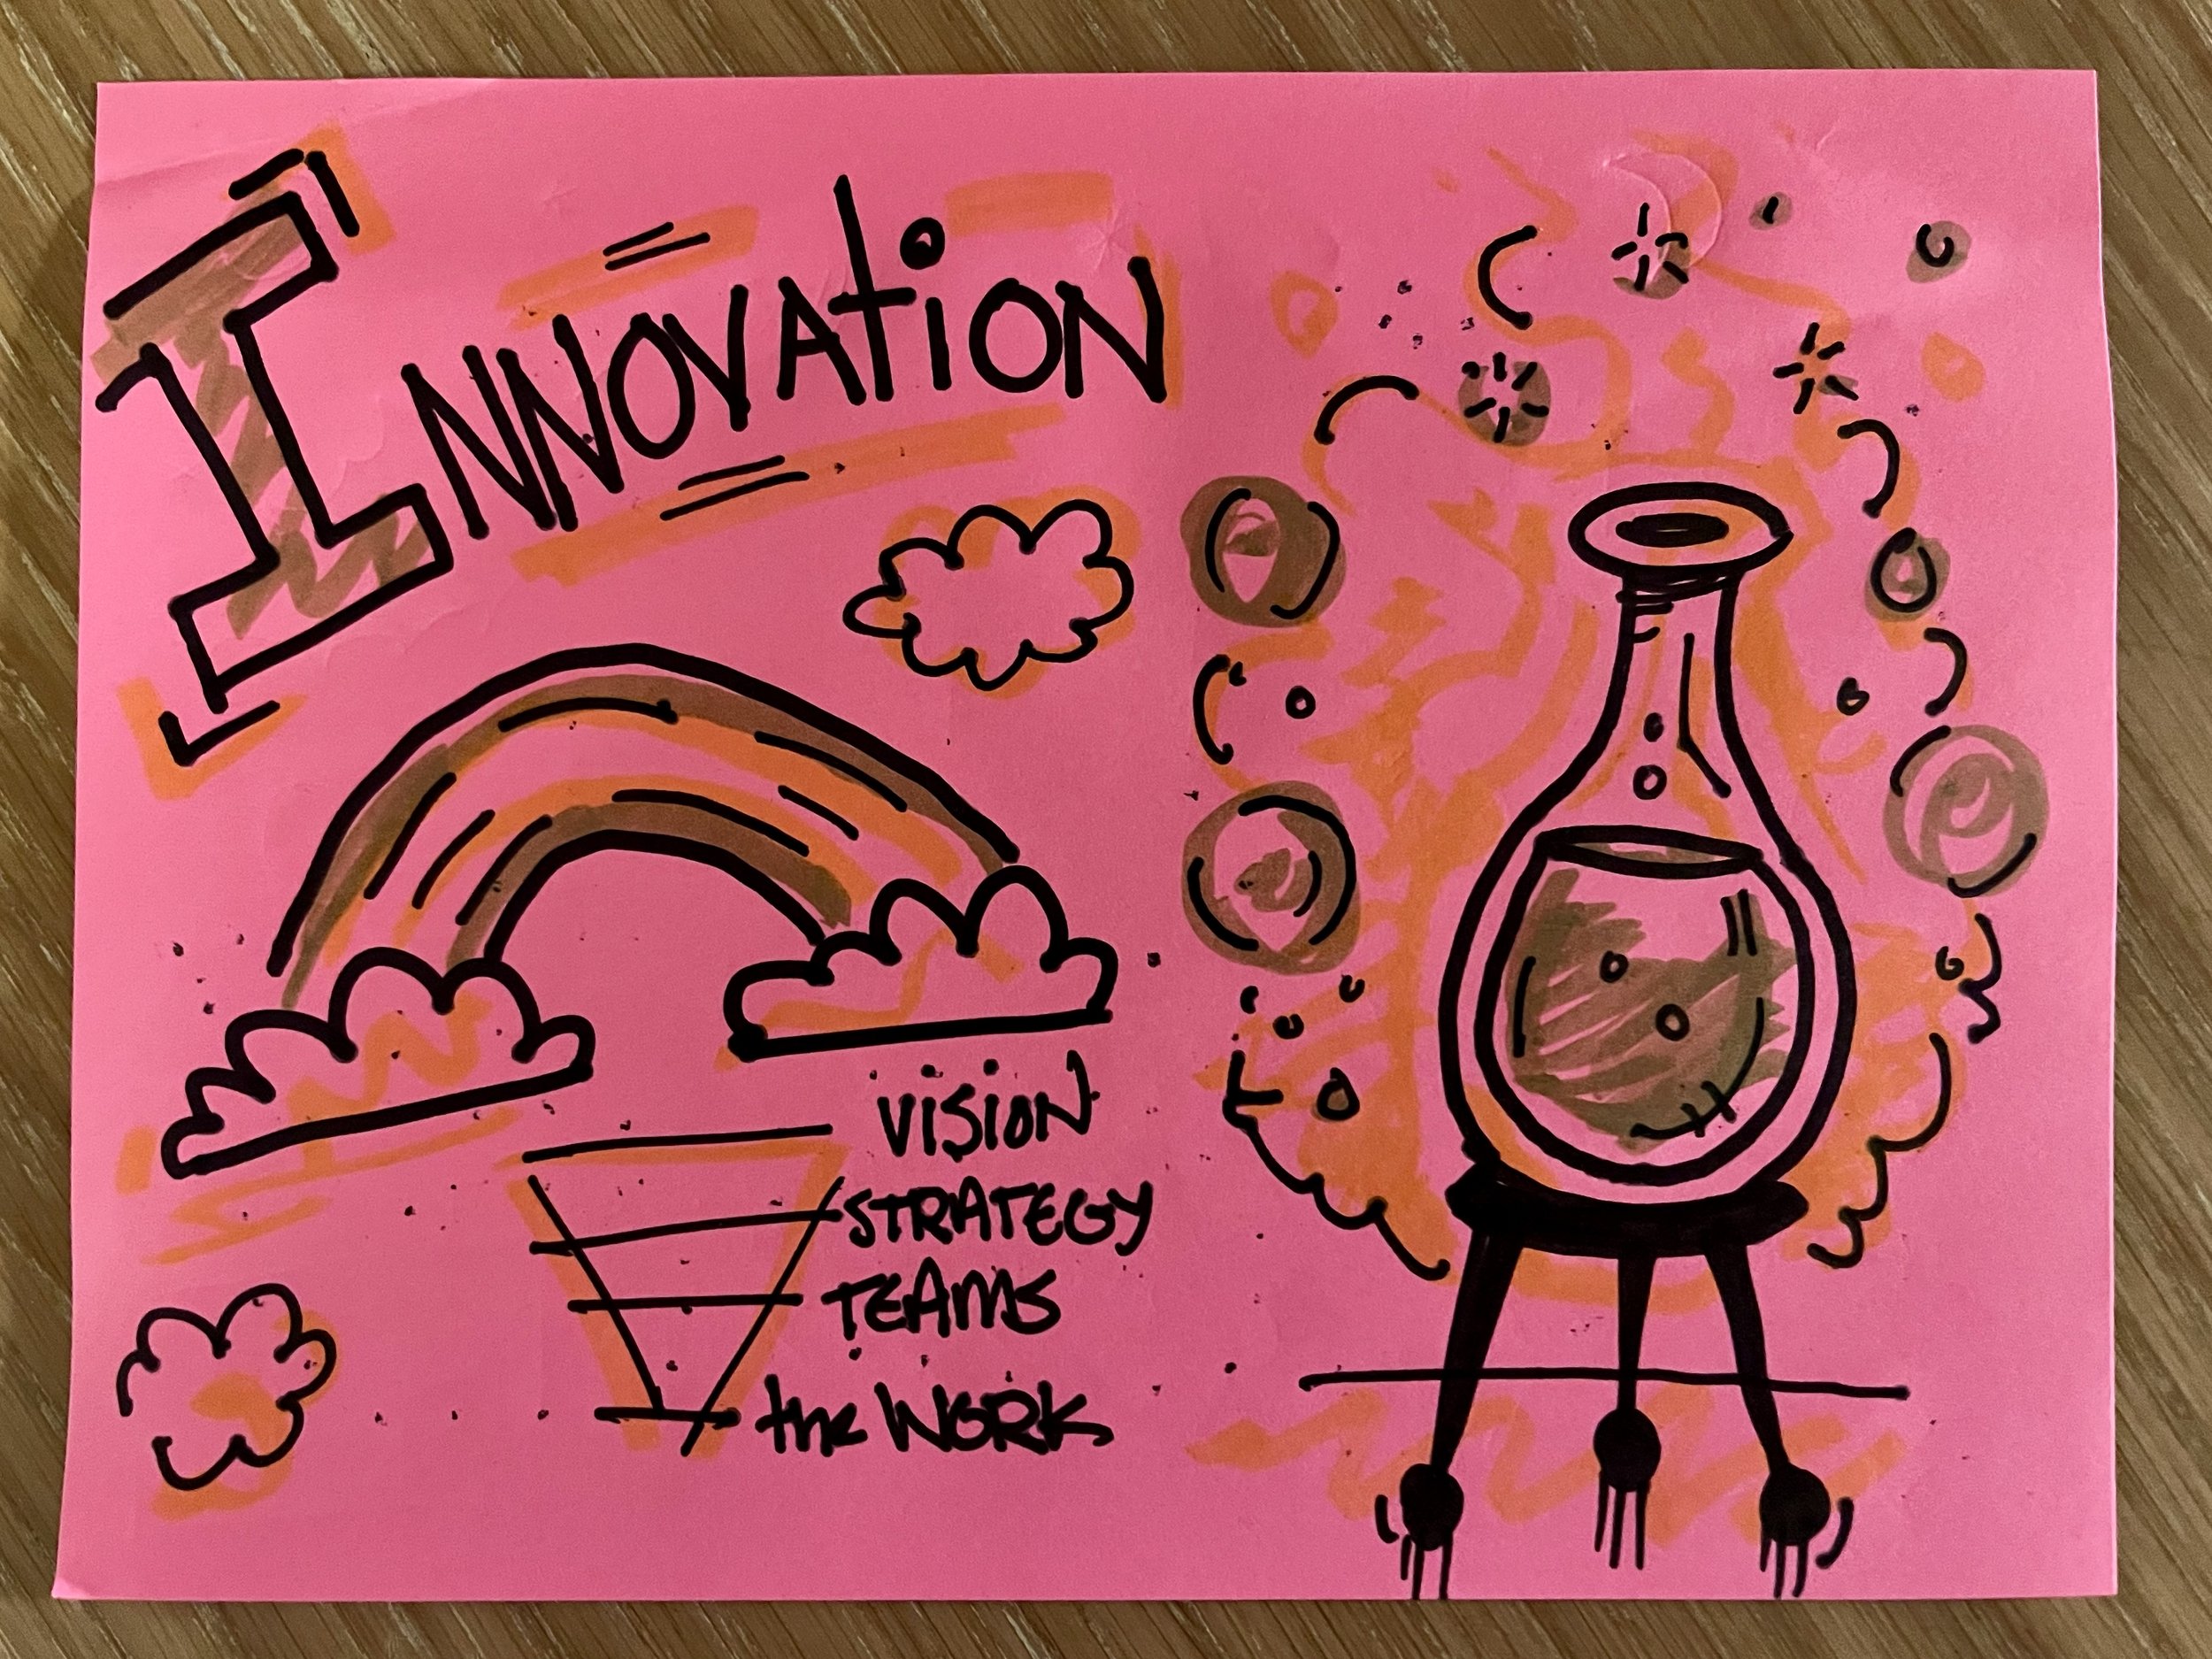 INNOVAtiON
VISION
STRATEGY
TEAMS
the WORK